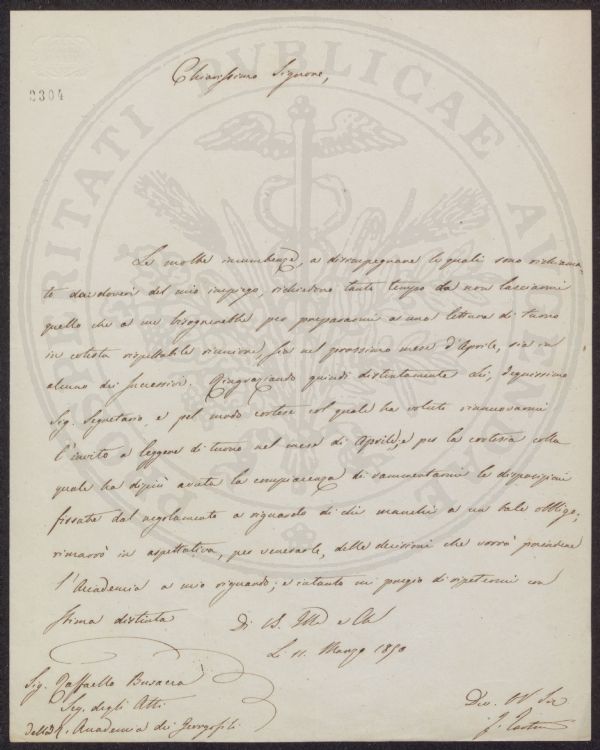 PROSPERITATI PVBLICAE AVGENDAE
2304
Chiarissimo Signore,
Le molte incumbenze, a disimpegnare le quali sono richiama-
to dai doveri del mio impiego, richiedono tanto tempo da non lasciarmi
quello che a me bisognerebbe per prepararmi a una lettura di turno
in cotesta rispettabile riunione, sia nel prossimo mese d'Aprile, sia in
alcuno dei successivi. Ringraziando quindi distintamente Lei, degnissimo
Sig. Segretario, e pel modo cortese col quale ha voluto rinnuovarmi
l'invito a leggere di turno nel mese di Aprile, e per la cortesia colla
quale ha dipiù avuta la compiacenza di rammentarmi le disposizioni
fissate dal regolamento a riguardo di chi manchi a un tale obbligo,
rimarrò in aspettativa, per venerarle, delle decisioni che vorrà prendere
l'Accademia a mio riguardo; e intanto mi pregio di ripetermi con
stima distinta
Di VS. Illma e
Li 11. Marzo 1850
Sig. Raffaello Busacca
Seg. degli Atti
della R. Accademia dei Georgofili
Dev.